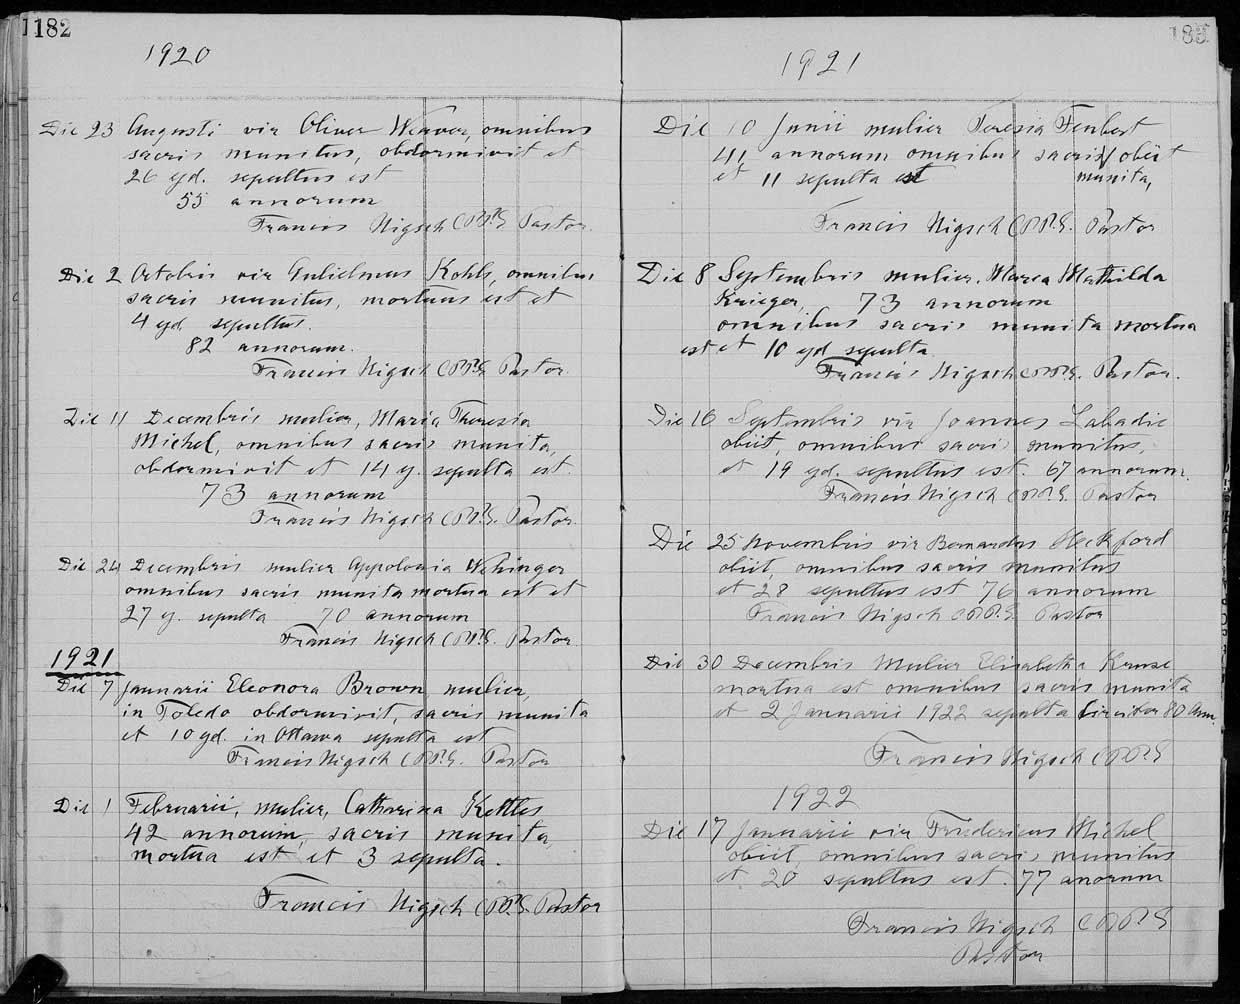 182
1920
Die 23 Augusti vir Oliver Weaver, omnibus
sacris munitus, obdormivit et
26 ejd. sepultus est
55 annorum
Francis Nigsch C.PP.S. Pastor.
Die 2 Octobris vir Gulielmus Kohls, omnibus
sacris munitus, mortuus est et
4 ejd sepultus.
82 annorum.
Francis Nigsch C.PP.S. Pastor.
Die 11 Decembris mulier, Maria Theresia
Michel, omnibus sacris munita,
obdormivit et 14 ej. sepulta est.
73 annorum
Francis Nigsch C.PP.S. Pastor.
Die 24 Decembris mulier Appolonia Wehinger
omnibus sacris munita mortua est et
27 ej. sepulta 70 annorum
Francis Nigsch C.PP.S. Pastor.
1921
Die 7 Januarii Eleonora Brown, mulier,
in Toledo obdormivit, sacris munita
et 10 ejd. in Ottawa sepulta est
Francis Nigsch C.PP.S. Pastor
Die 1 Februarii, mulier, Catharina Kettles
42 annorum, sacris munita,
mortua est et 3 sepulta.
Francis Nigsch C.PP.S. Pastor
183
1921
Die 10 Junii mulier Teresia Fenbert
41 annorum omnibus sacris obiit
munita,
et 11 sepulta est
Francis Nigsch C.PP.S. Pastor
Die 8 Septembris mulier, Maria Mathilda
Krieger, 73 annorum
omnibus sacris munita mortua
est et 10 ejd sepulta.
Francis Nigsch C.PP.S. Pastor.
Die 16 Septembris vir Joannes Labadie
obiit, omnibus sacris munitus,
et 19 ejd. sepultus est. 67 annorum.
Francis Nigsch C.PP.S. Pastor
Die 25 Novembris vir Bernardus Heckford
obiit, omnibus sacris munitus
et 28 sepultus est 76 annorum
Francis Nigsch C.PP.S. Pastor
Die 30 Decembris Mulier Elisabetha Kruse
mortua est omnibus sacris munita
et 2 Januarii 1922 sepulta circiter 80 Ann
Francis Nigsch C.PP.S
1922
Die 17 Januarii vir Fridericus Michel
obiit, omnibus sacris munitus
et 20 sepultus est. 77 anorum
Francis Nigsch C.PP.S
Pastor